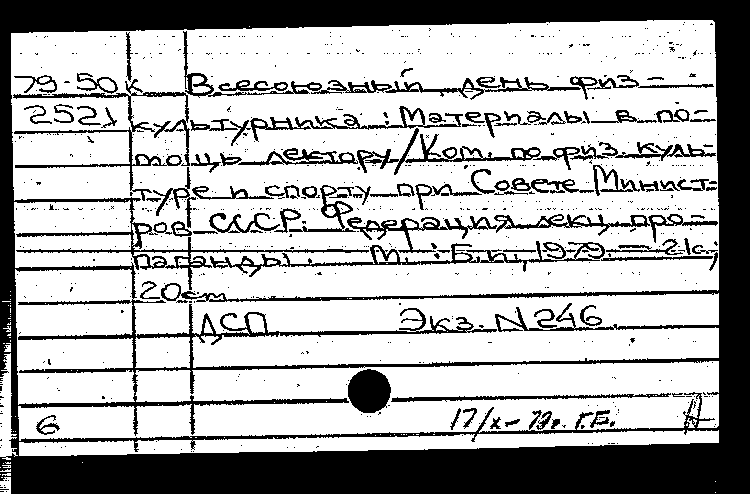 79-50к Всесоюзный день физ-
2521 культурника : Материалы в по-
мощь лектору/Ком. по физ. куль-
туре и спорту при Совете Минист-
ров СССР. Федерация лекц. про-
паганды. М. : Б.и., 1979. — 21с.;
20см
ДСП Экз. N 246.
6 17/X-79г. Г.Б.